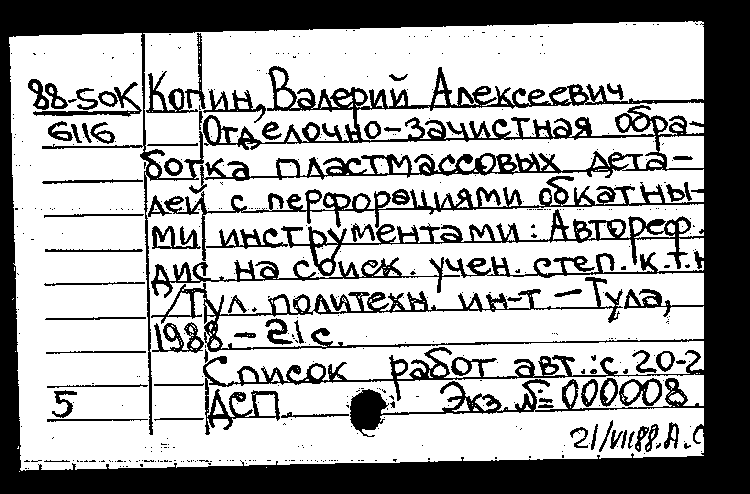 88-50К Копин, Валерий Алексеевич.
6116 Отделочно-зачистная обра-
ботка пластмассовых дета-
лей с перфорациями обкатны-
ми инструментами: Автореф.
дис. на соиск. учен. степ. к.т.н
/Тул. политехн. ин-т. – Тула,
1988. – 21 с.
Список работ авт.: с. 20-2
5 ДСП. Экз. № 000008.
21/VII88. А.С